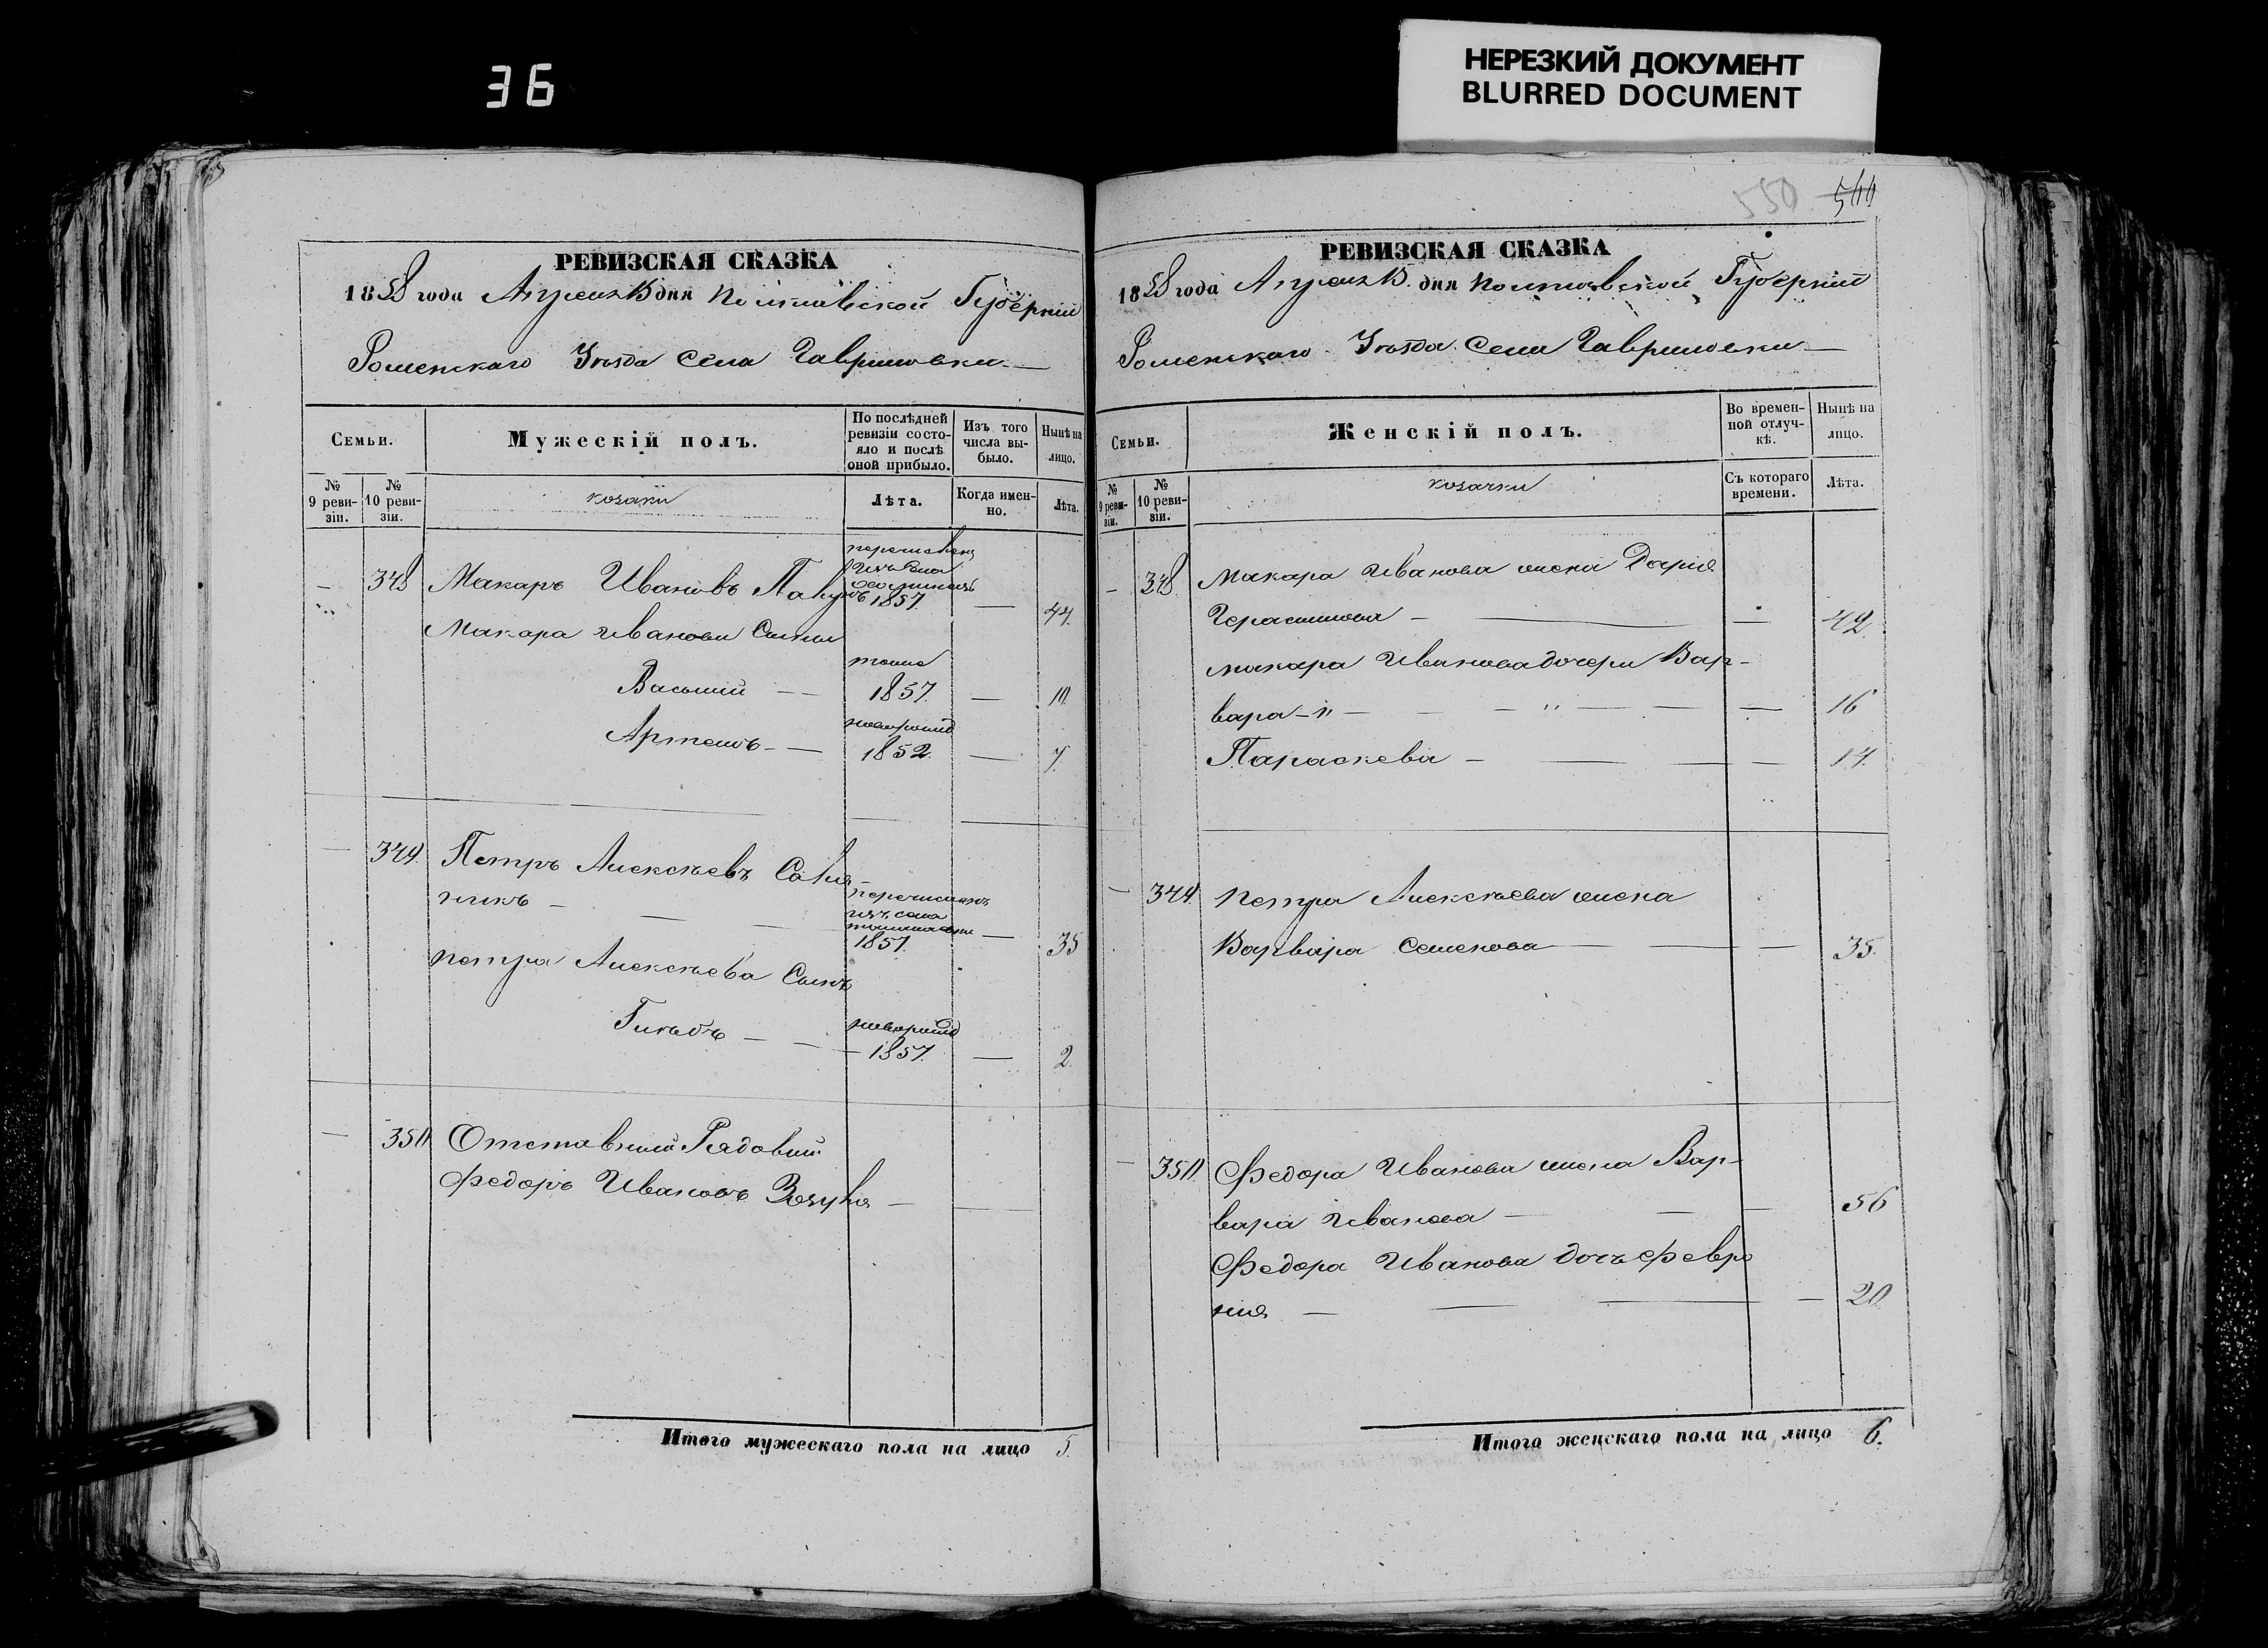 36
НЕРЕЗКИЙ ДОКУМЕНТ
BLURRED DOCUMENT
РЕВИЗСКАЯ СКАЗКА
1858 года Апреля 15 дня Полтавской Губерніи
Роменскаго Уѣзда Села Гавриловки
Семьи.
Мужескій полъ.
По послѣдней ревизіи состо-
яло и послѣ
оной прибыло.
Изъ того
числа вы-
было.
Нынѣ на
лицо.
№
9 реви-
зіи.
№
10 реви-
зіи.
козаки
Лѣта.
Когда имен-
но.
Лѣта.
348 Макаръ Ивановъ
1857
44.
Макара Иванова Сыны
тоже
Василий — — 1857. — 10.
новорожд
Артемъ — — 1852. — 7.
349. Петръ Алексѣевъ
перечисленъ
изъ села
1857. — 35
Петра Алексѣева Сынъ
новорожд
Глѣбъ — — 1857. — 2.
350 Отставный Рядовый
Федоръ Ивановъ —
Итого мужескаго пола на лицо 5.
550 544
РЕВИЗСКАЯ СКАЗКА
1858 года Апреля 15. дня Полтавской Губерніи
Роменскаго Уѣзда Села Гавриловки
Семьи.
Женскій полъ.
Во времен-
ной отлуч-
кѣ.
Нынѣ на
лицо.
№
9 реви-
зіи.
№
10 реви-
зіи.
козачки
Съ котораго
времени.
Лѣта.
348. Макара Иванова жена Дарія
Герасимова — — 42.
Макара Иванова дочери Вар-
вара — 16
Параскева — 14.
349. Петра Алексѣева жена
Варвара Семенова — 35.
350 Федора Иванова жена Вар-
вара Иванова — 56
Федора Иванова дочь Февро
нія — 20.
Итого женскаго пола на лицо 6.